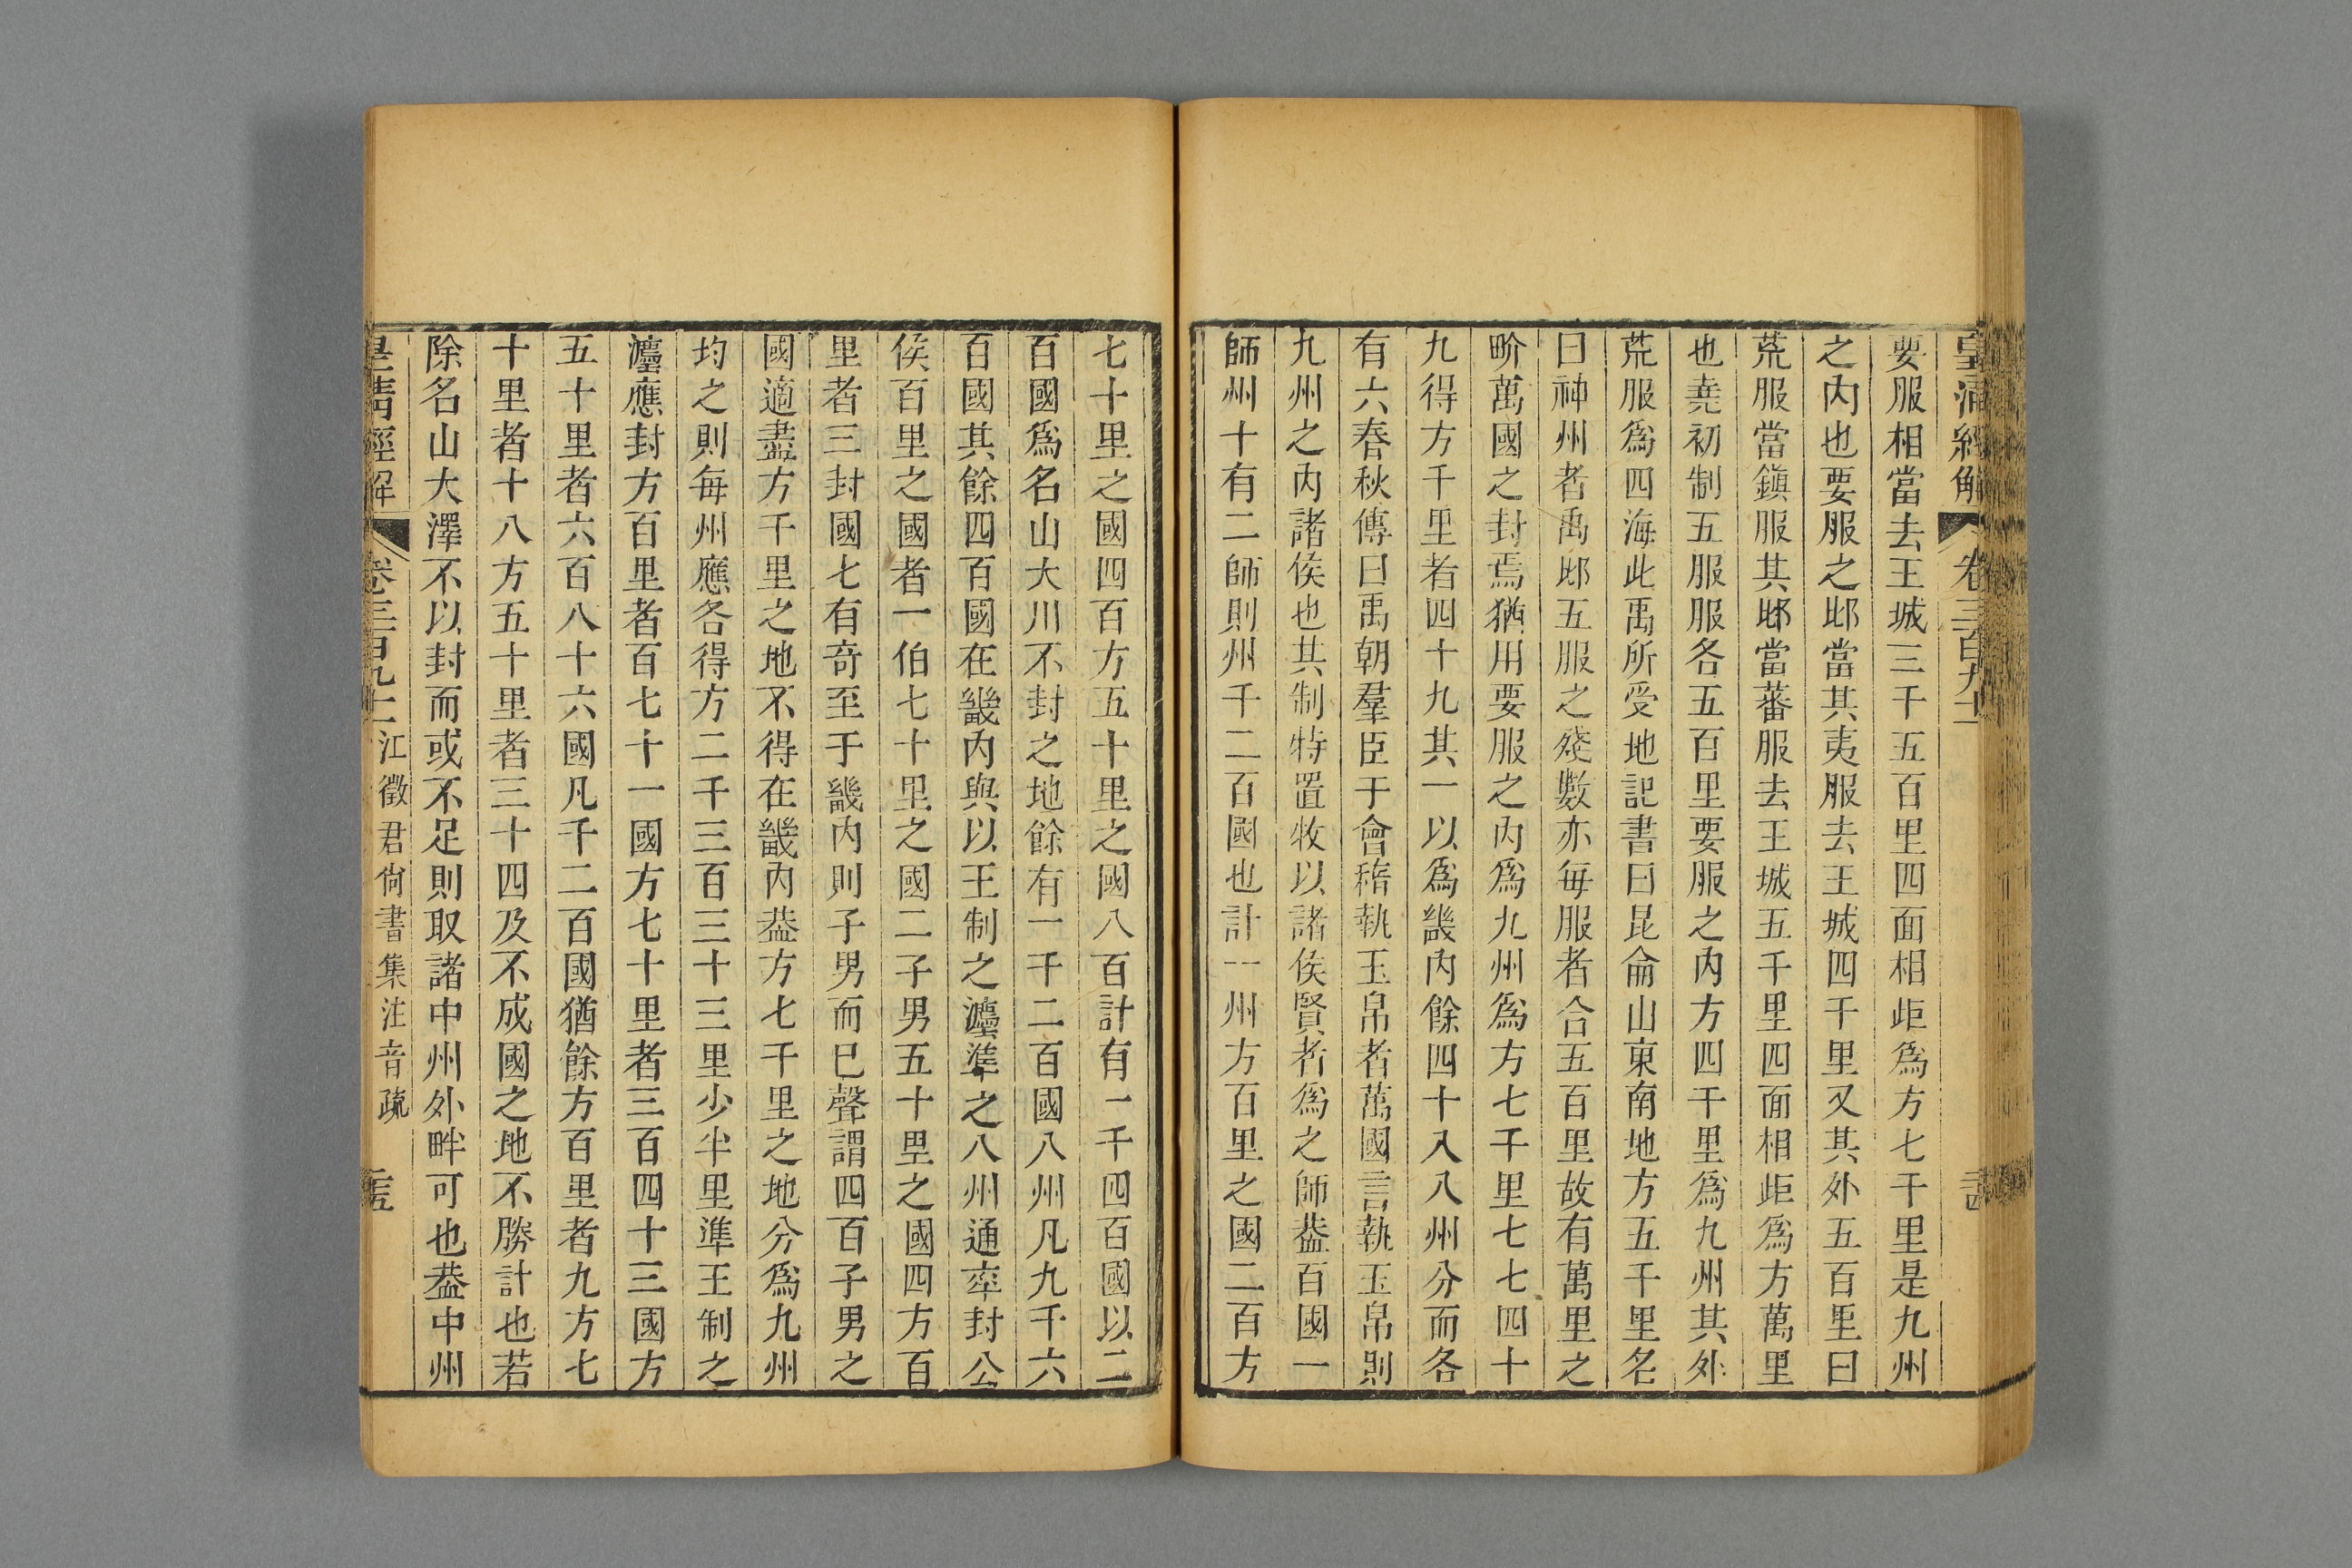 皇清經解
卷三百九十二
要服相當去王城三千五百里四面相距爲方七千里是九州
之內也要服之邶當其夷服去王城四千里又其外五百里曰
荒服當鎮服其邶當蕃服去王城五千里四面相距爲方萬里
也堯初制五服服各五百里要服之內方四千里爲九州其外
荒服爲四海此禹所受地記書曰昆侖山東南地方五千里名
曰神州者禹邶五服之殘數亦每服者合五百里故有萬里之
畍萬國之封焉猶用要服之內爲九州爲方七千里七七四十
九得方千里者四十九其一以爲畿內餘四十八八州分而各
有六春秋傳曰禹朝羣臣于會稽執玉帛者萬國言執玉帛則
九州之內諸侯也其制特置牧以諸侯賢者爲之師葢百國一
師州十有二師則州千二百國也計一州方百里之國二百方
七十里之國四百方五十里之國八百計有一千四百國以二
百國爲名山大川不封之地餘有一千二百國八州凡九千六
百國其餘四百國在畿內與以王制之灋準之八州通率封公
侯百里之國者一伯七十里之國二子男五十里之國四方百
里者三封國七有奇至于畿內則子男而已聲謂四百子男之
國適盡方千里之地不得在畿內葢方七千里之地分爲九州
均之則每州應各得方二千三百三十三里少半里準王制之
灋應封方百里者百七十一國方七十里者三百四十三國方
五十里者六百八十六國凡千二百國猶餘方百里者九方七
十里者十八方五十里者三十四及不成國之地不勝計也若
除名山大澤不以封而或不足則取諸中州外畔可也葢中州
皇清經解
卷三百九十二
江徵君尙書集注音疏